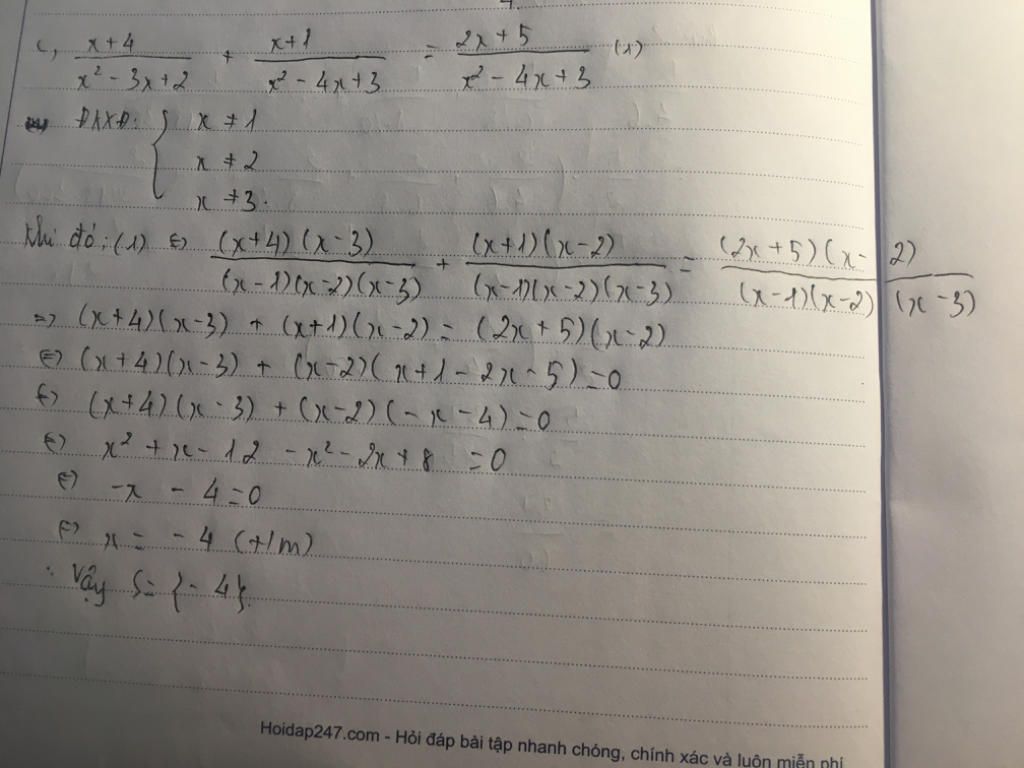 c, x+4/x² - 3x+2 + x+1/x² - 4x+3 = 2x+5/x² - 4x+3 (1)
ĐKXĐ: { x ≠ 1
x ≠ 2
x ≠ 3.
Khi đó: (1) ⇔ (x+4)(x-3)/(x-1)(x-2)(x-3) + (x+1)(x-2)/(x-1)(x-2)(x-3) = (2x+5)(x-2)/(x-1)(x-2)(x-3)
=> (x+4)(x-3) + (x+1)(x-2) = (2x+5)(x-2)
⇔ (x+4)(x-3) + (x-2)(x+1-2x-5)=0
⇔ (x+4)(x-3) + (x-2)(-x-4)=0
⇔ x² + x - 12 - x² - 2x + 8 = 0
⇔ -x - 4 = 0
⇔ x = -4 (t/m)
Vậy S = {-4}.
Hoidap247.com - Hỏi đáp bài tập nhanh chóng, chính xác và luôn miễn phí